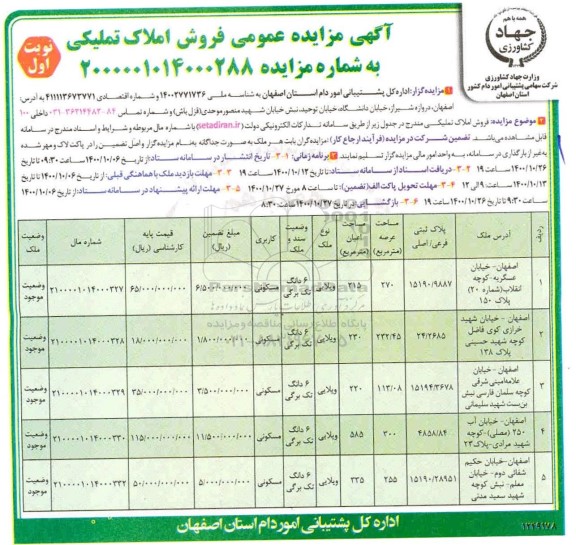 همه با هم
جهاد
کشاورزی
وزارت جهاد کشاورزی
شرکت سهامی پشتیبانی امور دام کشور
استان اصفهان
آگهی مزایده عمومی فروش املاک تملیکی
به شماره مزایده ۲۰۰۰۰۰۱۰۱۴۰۰۰۲۸۸
نوبت
اول
۱ مزایده گزار: اداره کل پشتیبانی امور دام استان اصفهان به شناسه ملی ۱۴۰۰۲۷۷۱۷۳۶ و شماره اقتصادی ۴۱۱۱۱۳۶۷۳۷۷۱ به آدرس
اصفهان، دروازه شیراز، خیابان دانشگاه، خیابان توحید، نبش خیابان شهید منصور موحدی (قزل باش) و شماره تماس ۸۴-۳۶۳۱۴۴۸۳-۰۳۱ داخلی ۱۰۰
۲ موضوع مزایده: فروش املاک تملیکی مندرج در جدول زیر از طریق سامانه تدارکات الکترونیکی دولت (setadiran.ir) با شماره مال مربوطه و شرایط و اسناد مندرج در سامانه
قابل مشاهده می‌باشد. تضمین شرکت در مزایده (فرآیند ارجاع کار) مزایده گران بابت هر ملک به صورت جداگانه بنام مزایده گزار واصل تضمین را در پاکت لاک و مهر شده
به غیر از بارگذاری در سامانه، به واحد امور مالی مزایده گزار تسلیم نمایند. ۳ برنامه زمانی: ۱-۳ تاریخ انتشار در سامانه ستاد: از تاریخ ۱۴۰۰/۱۰/۰۶ ساعت ۰۹:۳۰ تا تاریخ
۱۴۰۰/۱۰/۲۶ ساعت ۱۹ ۲-۳ دریافت اسناد از سامانه ستاد: تا تاریخ ۱۴۰۰/۱۰/۱۳ ساعت ۱۹ ۳-۳ مهلت بازدید ملک با هماهنگی قبلی: از تاریخ ۱۴۰۰/۱۰/۰۶ تا
۱۴۰۰/۱۰/۱۳ ساعت ۹ الی ۱۲ ۴-۳ مهلت تحویل پاکت الف (تضمین): تا ساعت ۸ مورخ ۱۴۰۰/۱۰/۲۷ ۵-۳ مهلت ارائه پیشنهاد در سامانه ستاد: از تاریخ ۱۴۰۰/۱۰/۰۶
ساعت ۹:۳۰ تا تاریخ ۱۴۰۰/۱۰/۲۶ ساعت ۱۹ ۶-۳ بازگشایی: در تاریخ ۱۴۰۰/۱۰/۲۷ ساعت ۸:۳۰
ردیف آدرس ملک پلاک ثبتی فرعی/اصلی مساحت عرصه (مترمربع) مساحت اعیان (مترمربع) نوع ملک وضعیت سند و ملک کاربری مبلغ تضمین (ریال) قیمت پایه کارشناسی (ریال) شماره مال وضعیت ملک
۱ اصفهان- خیابان عسگریه- کوچه انقلاب (شماره ۲۰) پلاک ۱۵۰ ۱۵۱۹۰/۹۸۸۷ ۲۷۰ ۳۱۵ ویلایی ۶ دانگ تک برگی مسکونی ۶/۵۰۰/۰۰۰/۰۰۰ ۶۵/۰۰۰/۰۰۰/۰۰۰ ۲۱۰۰۰۰۱۰۱۴۰۰۰۳۲۷ وضعیت موجود
۲ اصفهان - خیابان شهید خرازی کوی فاضل کوچه شهید حسینی پلاک ۱۳۸ ۲۴/۲۶۸۵ ۲۳۲/۴۵ ۲۳۰ ویلایی ۶ دانگ تک برگی مسکونی ۱/۸۰۰/۰۰۰/۰۰۰ ۱۸/۰۰۰/۰۰۰/۰۰۰ ۲۱۰۰۰۰۱۰۱۴۰۰۰۳۲۸ وضعیت موجود
۳ اصفهان- خیابان علامه‌امینی شرقی کوچه سلمان فارسی نبش بن‌بست شهید سلیمانی ۱۵۱۹۴/۳۶۷۸ ۱۱۳/۰۸ ۲۲۰ ویلایی ۶ دانگ تک برگی مسکونی ۳/۵۰۰/۰۰۰/۰۰۰ ۳۵/۰۰۰/۰۰۰/۰۰۰ ۲۱۰۰۰۰۱۰۱۴۰۰۰۳۲۹ وضعیت موجود
۴ اصفهان- خیابان آب ۲۵۰ (فضلی)- کوچه شهید مرادی- پلاک ۲۳ ۴۸۵۸/۸۴ ۳۰۰ ۵۸۵ ویلایی ۶ دانگ تک برگی مسکونی ۱۱/۵۰۰/۰۰۰/۰۰۰ ۱۱۵/۰۰۰/۰۰۰/۰۰۰ ۲۱۰۰۰۰۱۰۱۴۰۰۰۳۳۰ وضعیت موجود
۵ اصفهان - خیابان حکیم شفائی دوم- خیابان معلم- نبش کوچه شهید سعید مدنی ۱۵۱۹۰/۲۸۹۵۱ ۲۵۵ ۳۳۵ ویلایی ۶ دانگ تک برگی مسکونی ۵/۰۰۰/۰۰۰/۰۰۰ ۵۰/۰۰۰/۰۰۰/۰۰۰ ۲۱۰۰۰۰۱۰۱۴۰۰۰۳۳۲ وضعیت موجود
اداره کل پشتیبانی امور دام استان اصفهان
۱۲۴۹۱۷۸